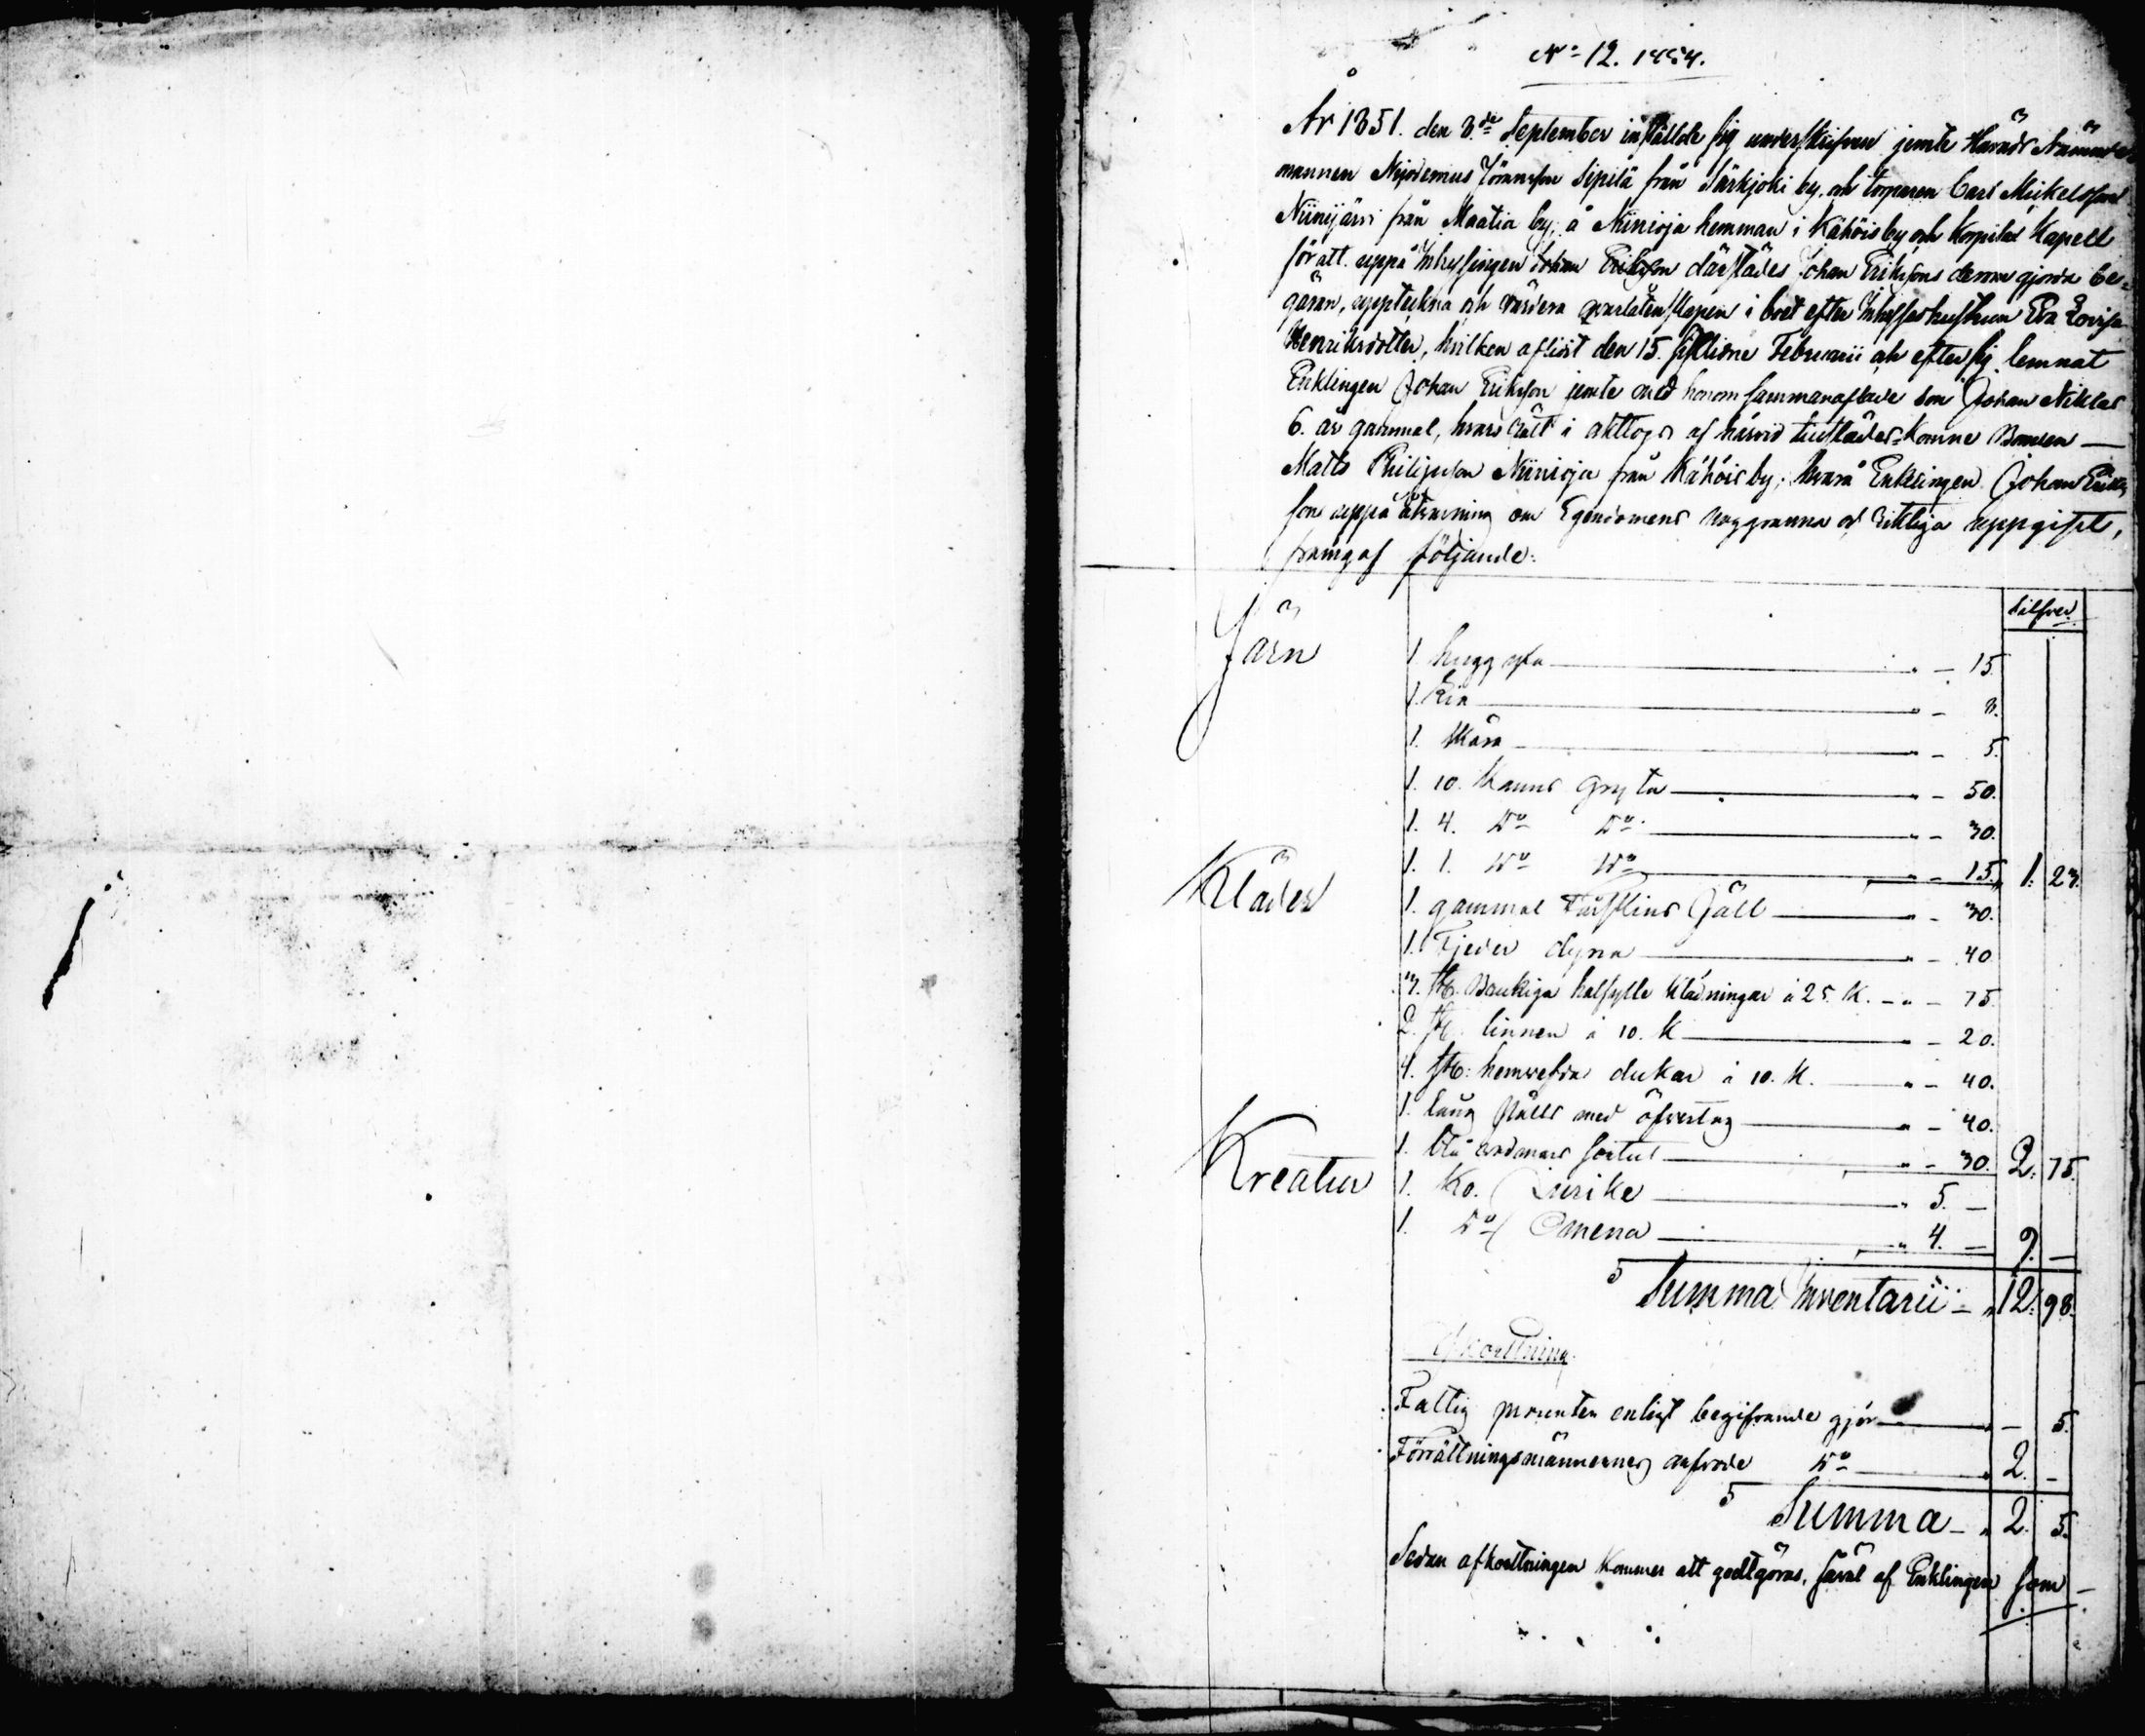 No 12. 1454.
År 1851. den 3.de September inställde sig underskrifven jemte Härads Nämnde
mannen Nijodemus Jöransson Sipilä från Särkjoki by, och torparen Carl Mickelsson
Niinijärvi från Maatia by, å Niinioja hemman i Kähöis by och Kapell
för att uppå Inhysingen Johan Eriksson därstädes Johan Erikssons derom gjorda be=
gäran, uppteckna och värdera qvarlåtenskapen i boet efter Inhyseshustrun Eva Lovisa
Henriksdotter, hvilken aflidit den 15. sistlidne Februarii och efter sig lemnat
Enklingen Johan Eriksson jemte med honom sammanaflade son Johan Niklas
6. år gammal, hvars rätt i akttogs af härvid tillstädes=komne Bonden —
Matts Philipsson Niinioja från Kähöis by; hvarå Enklingen Johan Erics
son uppå åtvarning om Egendomens noggranna och riktiga uppgift,
framgaf följande:
Silfver.
Järn
1 hugg yxa — " — 15.
1. Lia — " — 8.
1. Skära — " — 5.
1. 10. Kanns Gryta — " — 50.
1. 4. Do Do — " — 30.
1. 1. Do Do — " — 15. 1. 23.
Kläder
1. gammal Fäll — " — 30.
1. Fjeder dyna — " — 40
3. st. halfylle klädningar à 25. K. — " — 75
2. st. linnen à 10. K — " — 20.
4. st: hemväfda dukar à 10. K. — " — 40.
1. lång Päls med öfvertyg — " — 40.
1. blå vadmans — " — 30. 2. 75.
Kreatur
1. Ko. — " 5. —
1. Do Omena — " 4. — 9. —
Summa Inventarii — " 12. 98.
Afkortning.
Fattig procenten enligt begifvande gjör — " — 5.
Förrättningsmännernes arfvode Do — " 2. —
Summa — " 2. 5.
Sedan afkortningen kommer att godtgöras, såväl af Enklingen som —